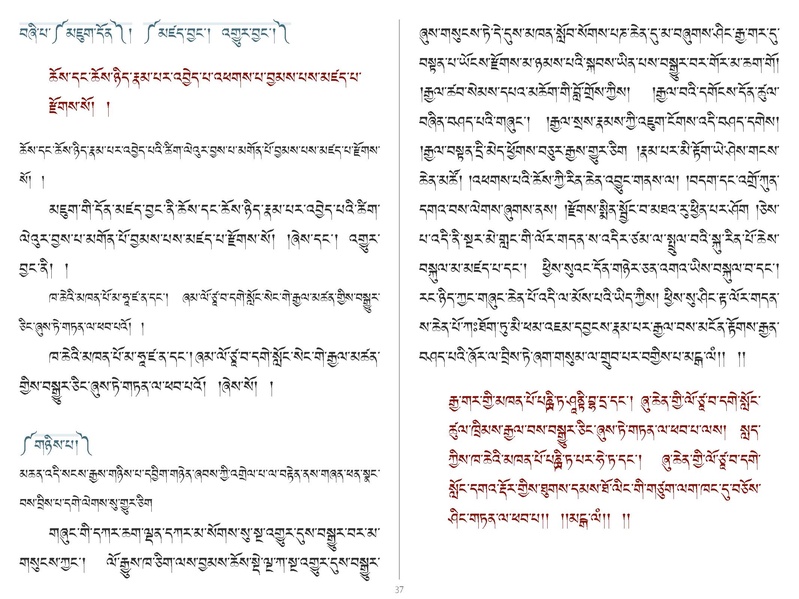 བཞི་པ་༼མཇུག་དོན༽ །  ༼མཛད་བྱང་།  འགྱུར་བྱང་།༽
ཆོས་དང་ཆོས་ཉིད་རྣམ་པར་འབྱེད་པ་འཕགས་པ་བྱམས་པས་མཛད་པ་
རྫོགས་སོ། །
ཆོས་དང་ཆོས་ཉིད་རྣམ་པར་འབྱེད་པའི་ཚིག་ལེའུར་བྱས་པ་མགོན་པོ་བྱམས་པས་མཛད་པ་རྫོགས་
སོ། །
མཇུག་གི་དོན་མཛད་བྱང་ནི་ཆོས་དང་ཆོས་ཉིད་རྣམ་པར་འབྱེད་པའི་ཚིག་
ལེའུར་བྱས་པ་མགོན་པོ་བྱམས་པས་མཛད་པ་རྫོགས་སོ། །ཞེས་དང་། འགྱུར་
བྱང་ནི། །
ཁ་ཆེའི་མཁན་པོ་མ་ཧཱ་ཛ་ན་དང་།  ཞམ་ལོ་ཙཱ་བ་དགེ་སློང་སེང་གེ་རྒྱལ་མཚན་གྱིས་བསྒྱུར་
ཅིང་ཞུས་ཏེ་གཏན་ལ་ཕབ་པའོ། །
ཁ་ཆེའི་མཁན་པོ་མ་ཧཱ་ཛ་ན་དང་། ཞམ་ལོ་ཙཱ་བ་དགེ་སློང་སེང་གེ་རྒྱལ་མཚན་
གྱིས་བསྒྱུར་ཅིང་ཞུས་ཏེ་གཏན་ལ་ཕབ་པའོ། །ཞེས་སོ། །
༼གཉིས་པ།༽
མཆན་འདི་སངས་རྒྱས་གཉིས་པ་དབྱིག་གཉེན་ཞབས་ཀྱི་འགྲེལ་པ་ལ་བརྟེན་ནས་གཞན་ཕན་སྣང་
བས་བྲིས་པ་དགེ་ལེགས་སུ་གྱུར་ཅིག
གཞུང་གི་དཀར་ཆག་ལྡན་དཀར་མ་སོགས་སུ་སྔ་འགྱུར་དུས་བསྒྱུར་བར་མ་
གསུངས་ཀྱང་།  ལོ་རྒྱུས་ཁ་ཅིག་ལས་བྱམས་ཆོས་སྡེ་ལྔ་ཀ་སྔ་འགྱུར་དུས་བསྒྱུར་
ཞུས་གསུངས་ཏེ་དེ་དུས་མཁན་སློབ་སོགས་པཎ་ཆེན་དུ་མ་བཞུགས་ཤིང་རྒྱ་གར་དུ་
བསྟན་པ་ཡོངས་རྫོགས་མ་ཉམས་པའི་སྐབས་ཡིན་པས་བསྒྱུར་བར་གོར་མ་ཆག་གོ།
།རྒྱལ་ཚབ་སེམས་དཔའ་མཆོག་གི་བློ་གྲོས་ཀྱིས།  །རྒྱལ་བའི་དགོངས་དོན་ཚུལ་
བཞིན་བཤད་པའི་གཞུང་།  །རྒྱལ་སྲས་རྣམས་ཀྱི་འཇུག་ངོགས་འདི་བཤད་དགེས།
།རྒྱལ་བསྟན་དྲི་མེད་ཕྱོགས་བཅུར་རྒྱས་གྱུར་ཅིག །རྣམ་པར་མི་རྟོག་ཡེ་ཤེས་གངས་
ཆེན་མཚོ། །འཕགས་པའི་ཆོས་ཀྱི་རིན་ཆེན་འབྱུང་གནས་ལ། །བདག་དང་འགྲོ་ཀུན་
དགའ་བས་ལེགས་ཞུགས་ནས། །རྫོགས་སྨིན་སྦྱོང་བ་མཐའ་རུ་ཕྱིན་པར་ཤོག །ཅེས་
པ་འདི་ནི་སྔར་མེ་གླང་གི་ལོར་གདན་ས་འདིར་ཙམ་ལ་སྤྲུལ་བའི་སྐུ་རིན་པོ་ཆེས་
བསྐུལ་མ་མཛད་པ་དང་།  ཕྱིས་སུའང་དོན་གཉེར་ཅན་འགའ་ཡིས་བསྐུལ་བ་དང་།
རང་ཉིད་ཀྱང་གཞུང་ཆེན་པོ་འདི་ལ་མོས་པའི་ཡིད་ཀྱིས། ཕྱིས་སུ་ཤིང་རྟ་ལོར་གདན་
ས་ཆེན་པོ་ཀཿཐོག་ཏུ་མི་ཕམ་འཇམ་དབྱངས་རྣམ་པར་རྒྱལ་བས་མངོན་རྟོགས་རྒྱན་
བཤད་པའི་ཞོར་ལ་བྲིས་ཏེ་ཞག་གསུམ་ལ་གྲུབ་པར་བགྱིས་པ་མངྒ་ལཾ།། །།
རྒྱ་གར་གྱི་མཁན་པོ་པཎྜི་ཏ་ཤཱནྟི་བྷ་དྲ་དང་། ཞུ་ཆེན་གྱི་ལོ་ཙཱ་བ་དགེ་སློང་
ཚུལ་ཁྲིམས་རྒྱལ་བས་བསྒྱུར་ཅིང་ཞུས་ཏེ་གཏན་ལ་ཕབ་པ་ལས།  སླད་
ཀྱིས་ཁ་ཆེའི་མཁན་པོ་པཎྜི་ཏ་པར་ཧེ་ཏ་དང་།  ཞུ་ཆེན་གྱི་ལོ་ཙཱ་བ་དགེ་
སློང་དགའ་རྡོར་གྱིས་ཐུགས་དམས་ཐོ་ལིང་གི་གཙུག་ལག་ཁང་དུ་བཅོས་
ཤིང་གཏན་ལ་ཕབ་པ།། །།མངྒ་ལཾ།། །།
37